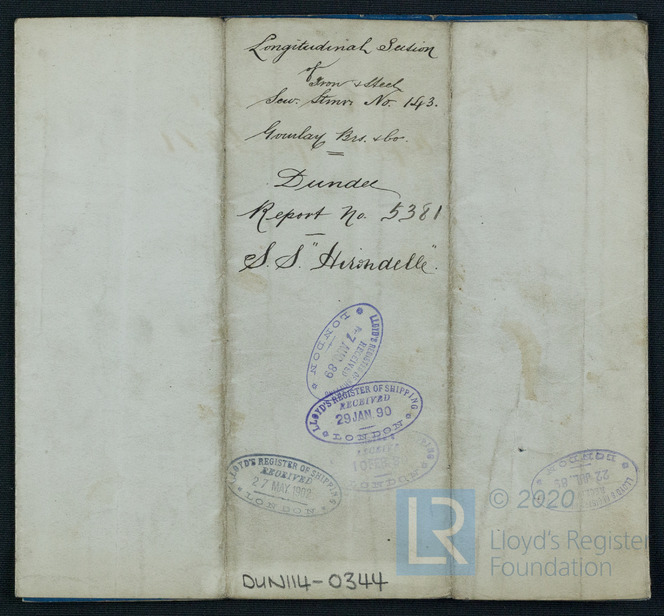 Longitudinal Section
of
Iron & Steel
Scw. Stmr. No. 143.
Gourlay Brs. & Co.
Dundee
Report No. 5381
S. S. "Hirondelle".
LLOYD'S REGISTER
RECEIVED
LONDON
LLOYD'S REGISTER OF SHIPPING
RECEIVED
29 JAN. 90
LONDON
LLOYD'S REGISTER OF SHIPPING
RECEIVED
27 MAY 1902
LONDON
LONDON
DUN114-0344
© 2020
LR
Lloyd's Register
Foundation